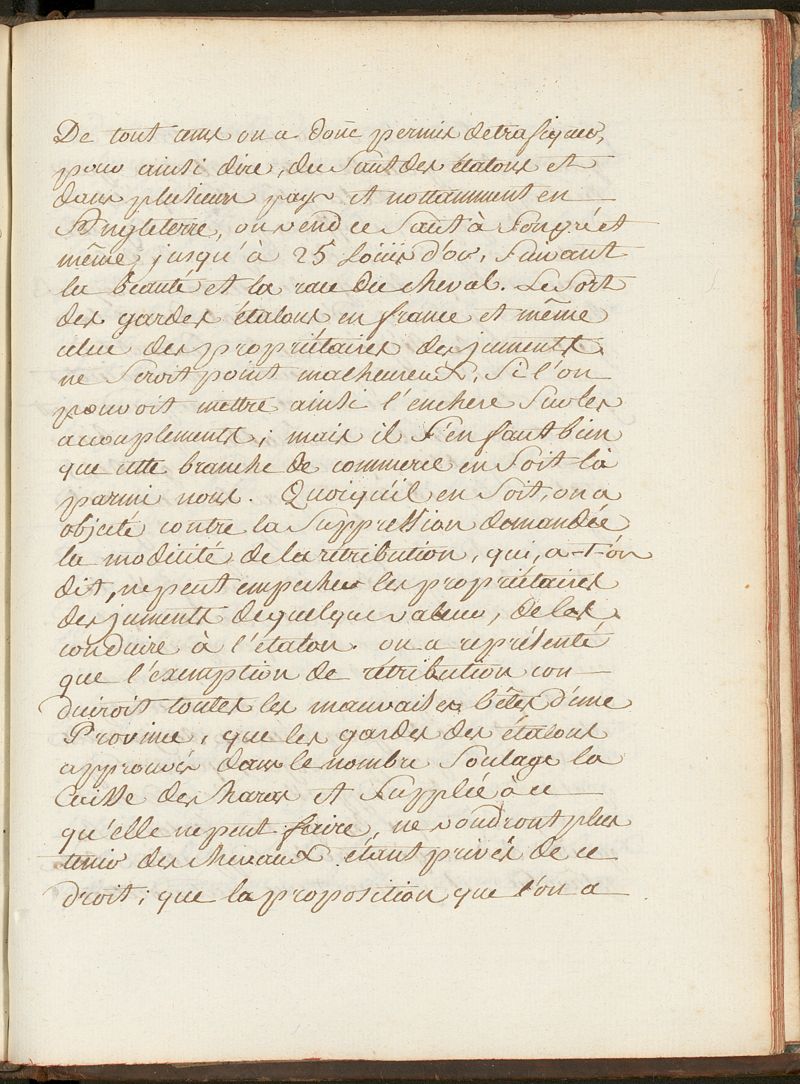 De tout tems on a donc permis de trafiquer,
pour ainsi dire, du Saut des étalons et
dans plusieurs pays et nottamment en
Angleterre, on vend ce Saut à Son gré et
même jusqu'à 25 Loüis d'or, Suivant
la beauté et la race du cheval. Le Sort
des gardes étalons en france et même
celui des propriétaires des juments
ne Seroit point malheureux, Si l'on
pouvoit mettre ainsi l'enchere Sur les
accouplements; mais il S'en faut bien
que cette branche de commerce en Soit là
parmi nous. Quoiqu'il en Soit, on a
objecté contre la Suppression demandée
la modicité de la rétribution, qui, a-t-on
dit, ne peut empecher les propriétaires
des juments de quelque valeur, de les
conduire à l'étalon. on a représenté
que l'exemption de rétribution con-
duiroit toutes les mauvaises bêtes d'une
Province, que les gardes des étalons
approuvés dans le nombre Soulage la
Caisse des haras et Supplée à ce
qu'elle ne peut faire, ne voudront plus
tenir des chevaux étant privés de ce
droit; que la proposition que l'on a